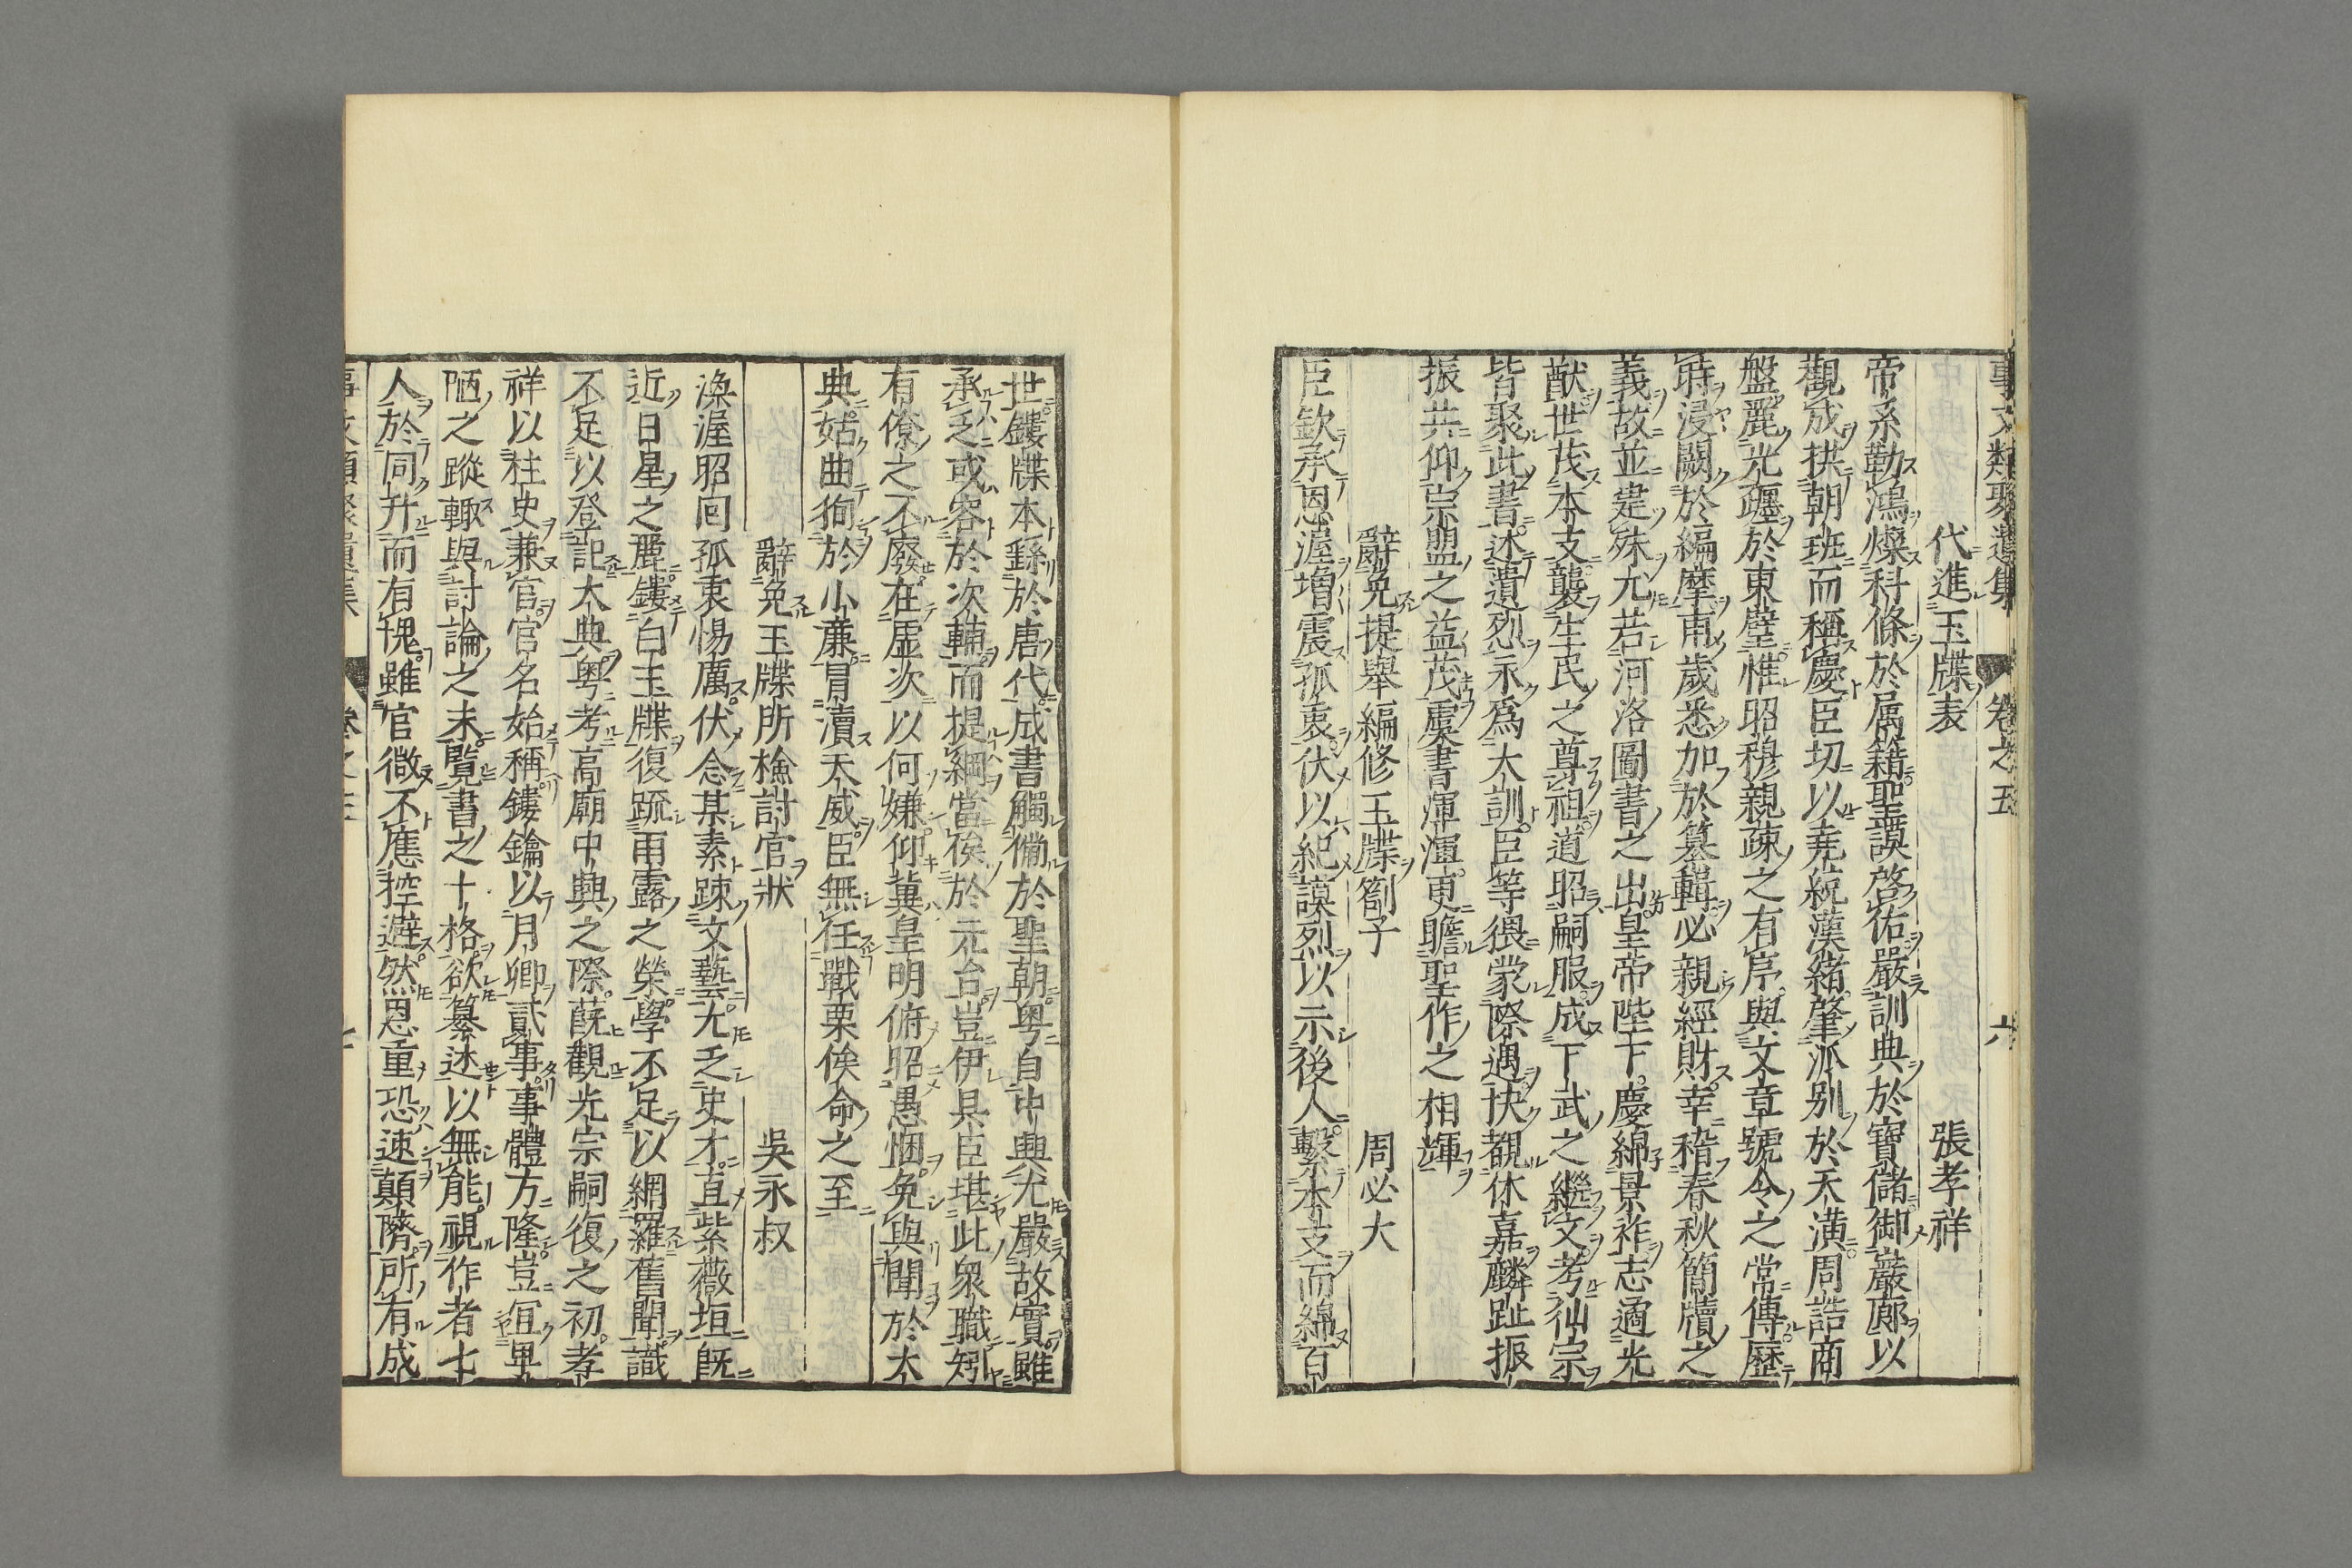 事文類聚遺集 卷之五 六
代進玉牒表 張孝祥
帝系勒鴻燦科條於属籍聖謨啓佑嚴訓典於寶儲御巖廊以
觀成拱朝班而稱慶臣切以堯統漢緒肇派別於天潢周誥商
盤麗光躔於東壁惟昭穆親疎之有序與文章號令之常傳歴
時浸闕於編摩甫歲悉加於纂輯必親經財幸稽春秋簡牘之
義故並建殊尤若河洛圖書之出皇帝陛下慶綿景祚志遹光
猷世茂本支襲生民之尊祖道昭嗣服成下武之繼文考仙宗
皆聚此書述遺烈永爲大訓臣等猥蒙際遇快覩休嘉麟趾振
振共仰宗盟之益茂虞書渾渾更瞻聖作之相輝
辭免提舉編修玉牒劄子 周必大
臣欽承恩渥增震孤衷伏以紀謨烈以示後人繫本支而綿百
世鏤牒本繇於唐代成書觸備於聖朝粤自中興尤嚴故實雖
承乏或容於次輔而提綱當俟於元台豈伊具臣堪此衆職矧
有僚之不廢在虚次以何嫌仰冀皇明俯昭愚悃免與聞於大
典姑曲徇於小廉冒瀆天威臣無任戰栗俟命之至
辭免玉牒所檢討官狀 吳永叔
渙渥昭囘孤衷惕厲伏念某素踈文藝尤乏史才直紫薇垣旣
近日星之麗鏤白玉牒復䟽雨露之榮學不足以網羅舊聞識
不足以登記大典粤考高廟中興之際蔇觀光宗嗣復之初孝
祥以柱史兼官官名始稱鏤鑰以月卿貳事事體方隆豈宜畢
陋之蹤輙與討論之末覽書之十格欲纂述以無能視作者七
人於同升而有愧雖官微不應控避然恩重恐速顛隮所有成